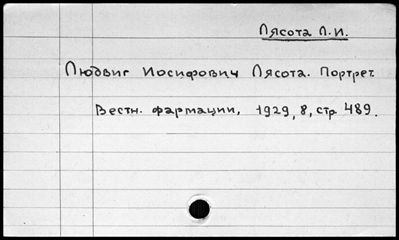 Лясота Л.И.
Людвиг Иосифович Лясота. Портрет.
Вестн. фармации, 1929, 8, стр. 489.